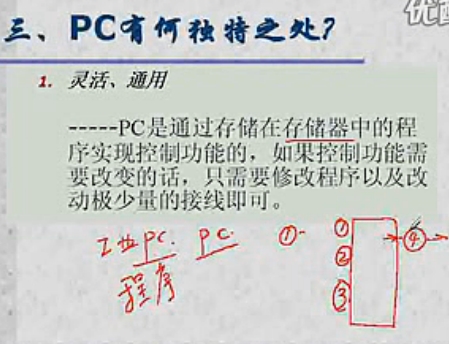 优酷
三、PC有何独特之处?
1. 灵活、通用
-----PC是通过存储在存储器中的程
序实现控制功能的，如果控制功能需
要改变的话，只需要修改程序以及改
动极少量的接线即可。
工业PC. PC. ① ① ④
程序 ②
③